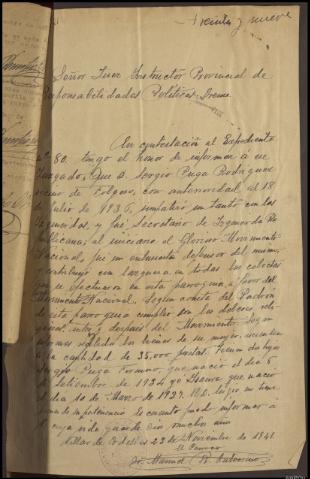 Treinta y nueve
Señor Juez Instructor Provincial de
Responsabilidades Políticas. Orense
En contestación al Expediente
nº 80 tengo el honor de informar a ese
Juzgado, Que D. Sergio Puga Rodríguez
vecino de Folgoso, con anterioridad al 18
de Julio de 1936, simpatizó un tanto con las
izquierdas, y fué Secretario de Izquierda Re-
publicana; al iniciarse el Glorioso Movimiento
Nacional, fué un entusiasta defensor del mismo,
contribuyó con largueza en todas las colectas
que se efectuaron en esta parroquia a favor del
Movimiento Nacional. Según consta del Padrón
de esta parroquia cumplía con los deberes reli-
giosos antes y después del Movimiento. Según
informes los bienes de su mujer,
a la cantidad de 35.000 pesetas. Tienen dos hijos
Sergio Puga que nació el día 5
de Setiembre de 1934 y que nació
el día 10 de Marzo de 1937.
es cuanto puedo informar á
cuya vida guarde Dios muchos años
Villar de 23 de Noviembre de 1941
El Párroco
Manuel